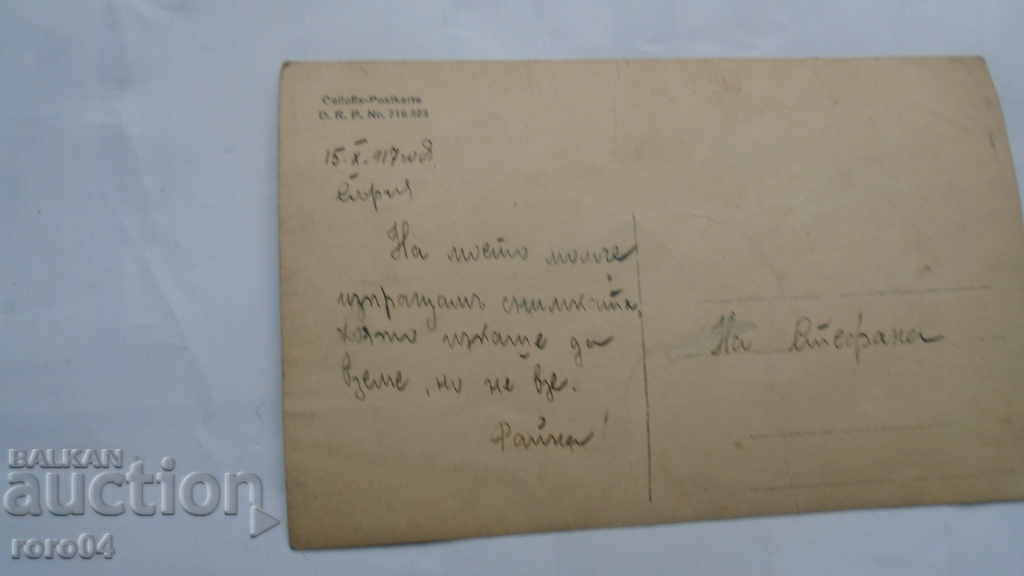 Cellofix-Postkarte
D. R. P. No.
15.X.
София
На моето момче
изпращамъ снимката,
която искаше да
вземе, но не взе.
Райна
На Стефана
BALKAN
auction
roro04